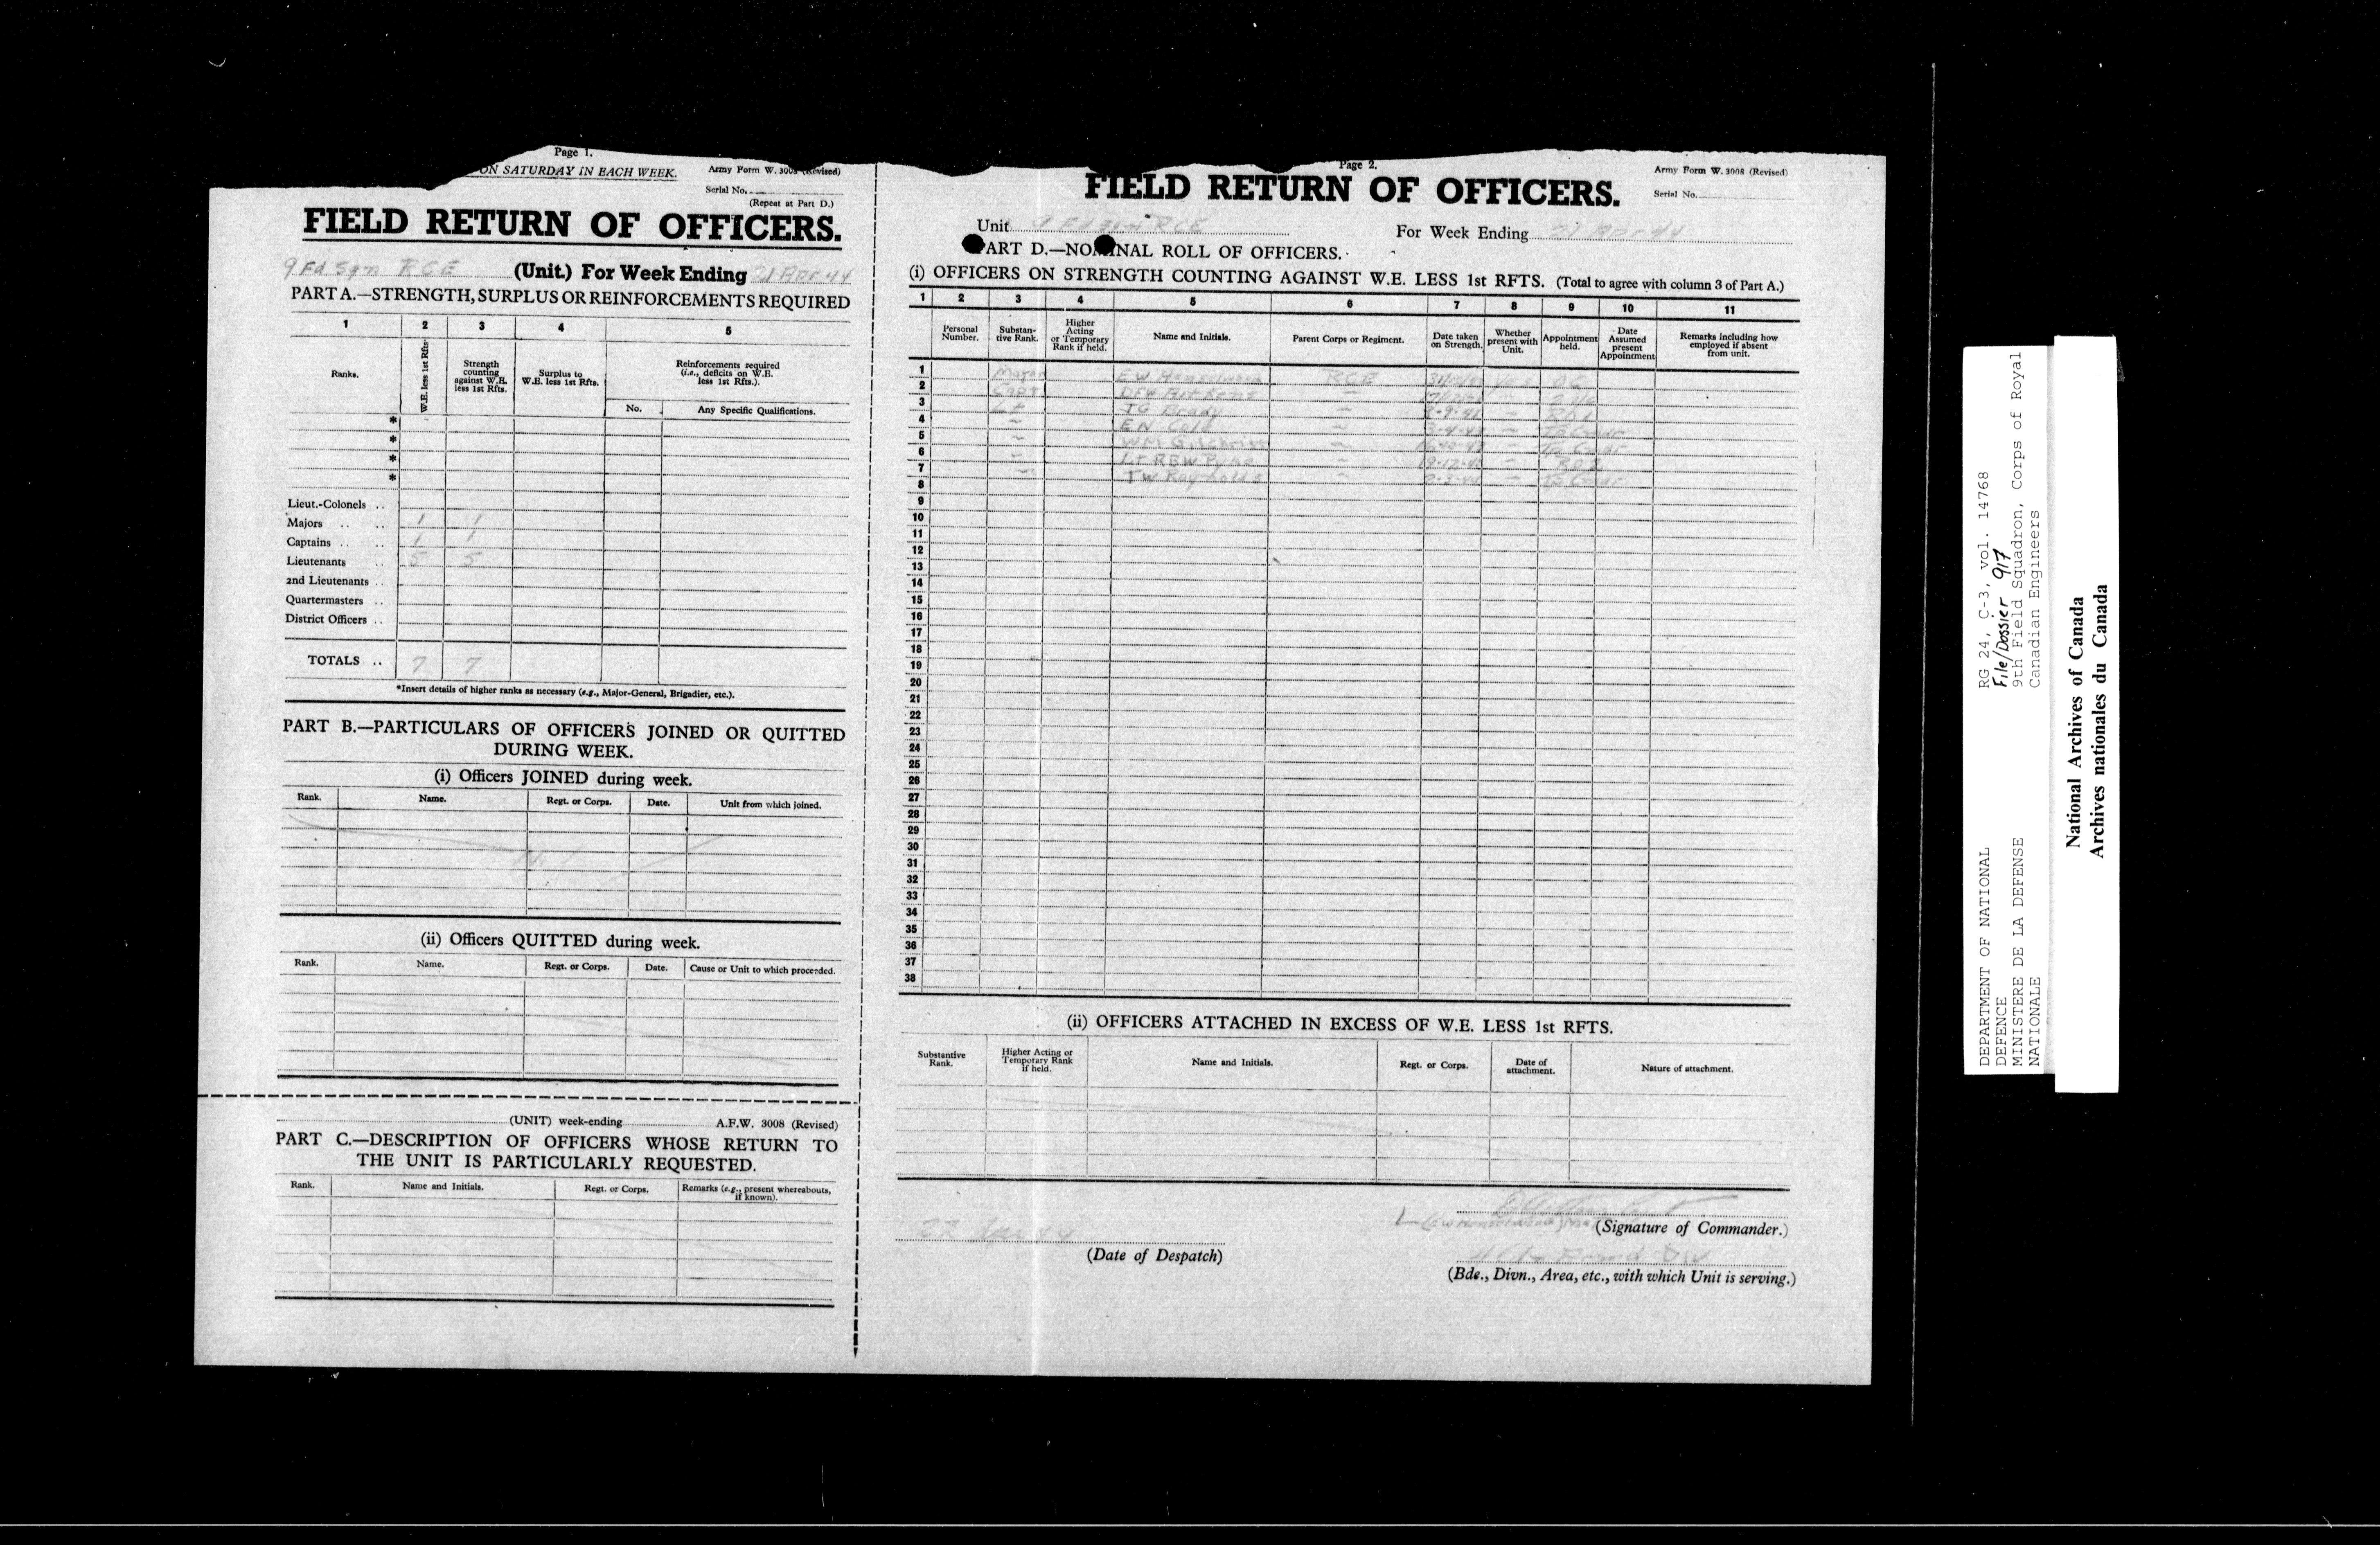 Page 1.
ON SATURDAY IN EACH WEEK.
Army Form W. 3008 (Revised)
Serial No.
(Repeat at Part D.)
FIELD RETURN OF OFFICERS.
9 Fd Sqn RCE (Unit.) For Week Ending 21 Apr 44
PART A.—STRENGTH, SURPLUS OR REINFORCEMENTS REQUIRED
1 2 3 4 5
Ranks.
W.E. less 1st Rfts.
Strength counting against W.E. less 1st Rfts.
Surplus to W.E. less 1st Rfts.
Reinforcements required (i.e., deficits on W.E. less 1st Rfts.).
No. Any Specific Qualifications.
*
*
*
*
Lieut.-Colonels ..
Majors .. .. 1 1
Captains .. .. 1 1
Lieutenants .. 5 5
2nd Lieutenants ..
Quartermasters ..
District Officers ..
TOTALS .. 7 7
*Insert details of higher ranks as necessary (e.g., Major-General, Brigadier, etc.).
PART B.—PARTICULARS OF OFFICERS JOINED OR QUITTED
DURING WEEK.
(i) Officers JOINED during week.
Rank. Name. Regt. or Corps. Date. Unit from which joined.
(ii) Officers QUITTED during week.
Rank. Name. Regt. or Corps. Date. Cause or Unit to which proceeded.
(UNIT) week-ending A.F.W. 3008 (Revised)
PART C.—DESCRIPTION OF OFFICERS WHOSE RETURN TO
THE UNIT IS PARTICULARLY REQUESTED.
Rank. Name and Initials. Regt. or Corps. Remarks (e.g., present whereabouts, if known).
Page 2.
Army Form W. 3008 (Revised)
Serial No.
FIELD RETURN OF OFFICERS.
Unit 9 Fd Sqn RCE For Week Ending 21 Apr 44
PART D.—NOMINAL ROLL OF OFFICERS.
(i) OFFICERS ON STRENGTH COUNTING AGAINST W.E. LESS 1st RFTS. (Total to agree with column 3 of Part A.)
1 2 3 4 5 6 7 8 9 10 11
Personal Number.
Substantive Rank.
Higher Acting or Temporary Rank if held.
Name and Initials.
Parent Corps or Regiment.
Date taken on Strength.
Whether present with Unit.
Appointment held.
Date Assumed present Appointment
Remarks including how employed if absent from unit.
1 Major EW RCE OC
2 Capt DFW
3 Lt TG Brady
4 EN
5 WM
6 Lt REW
7 TW
8
9
10
11
12
13
14
15
16
17
18
19
20
21
22
23
24
25
26
27
28
29
30
31
32
33
34
35
36
37
38
(ii) OFFICERS ATTACHED IN EXCESS OF W.E. LESS 1st RFTS.
Substantive Rank. Higher Acting or Temporary Rank if held. Name and Initials. Regt. or Corps. Date of attachment. Nature of attachment.
(Signature of Commander.)
22 44
(Date of Despatch)
(Bde., Divn., Area, etc., with which Unit is serving.)
DEPARTMENT OF NATIONAL
DEFENCE
MINISTERE DE LA DEFENSE
NATIONALE
RG 24, C-3, vol. 14768
File/Dossier 917
9th Field Squadron, Corps of Royal
Canadian Engineers
National Archives of Canada
Archives nationales du Canada